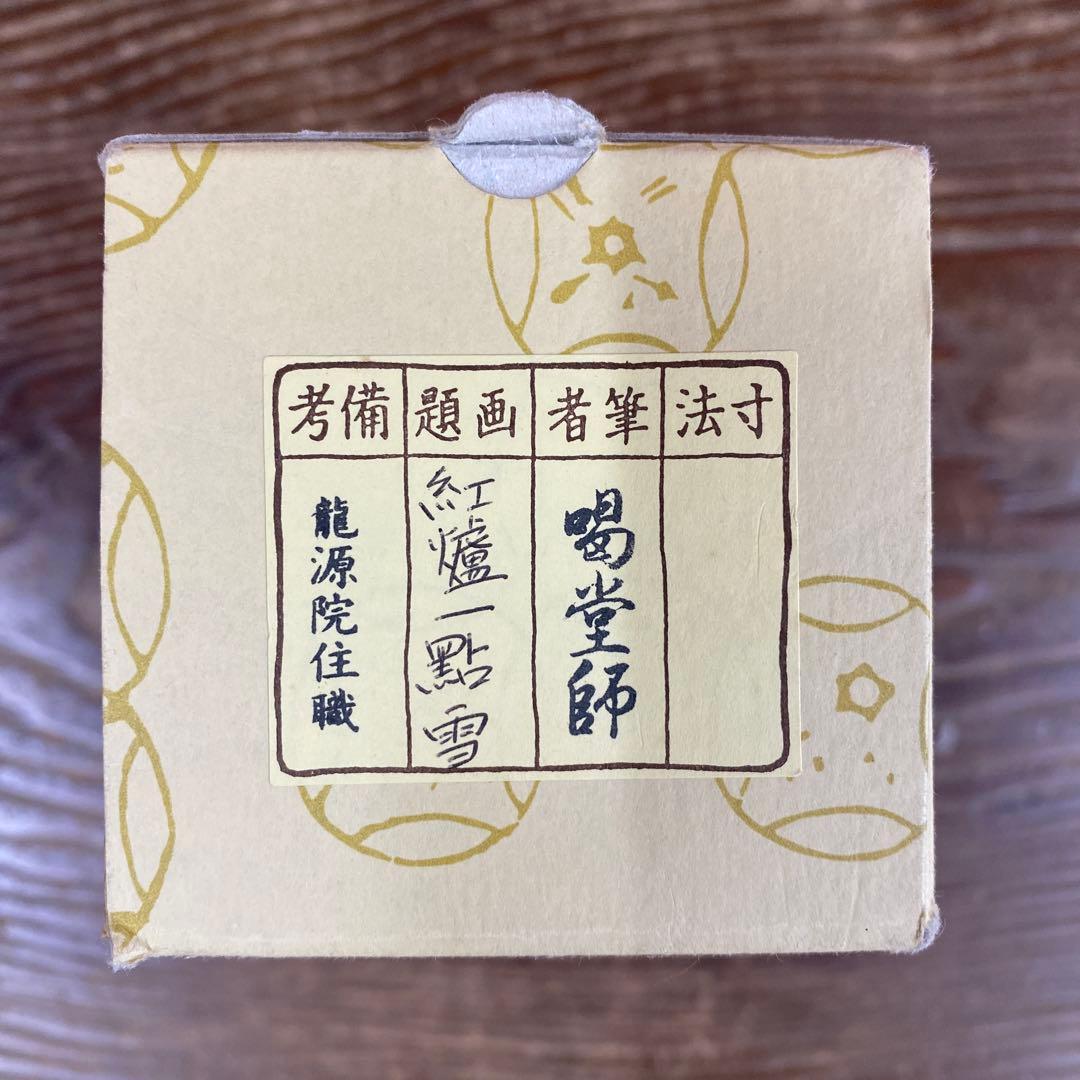 寸法
筆者
喝堂師
画題
紅爐一點雪
備考
龍源院住職